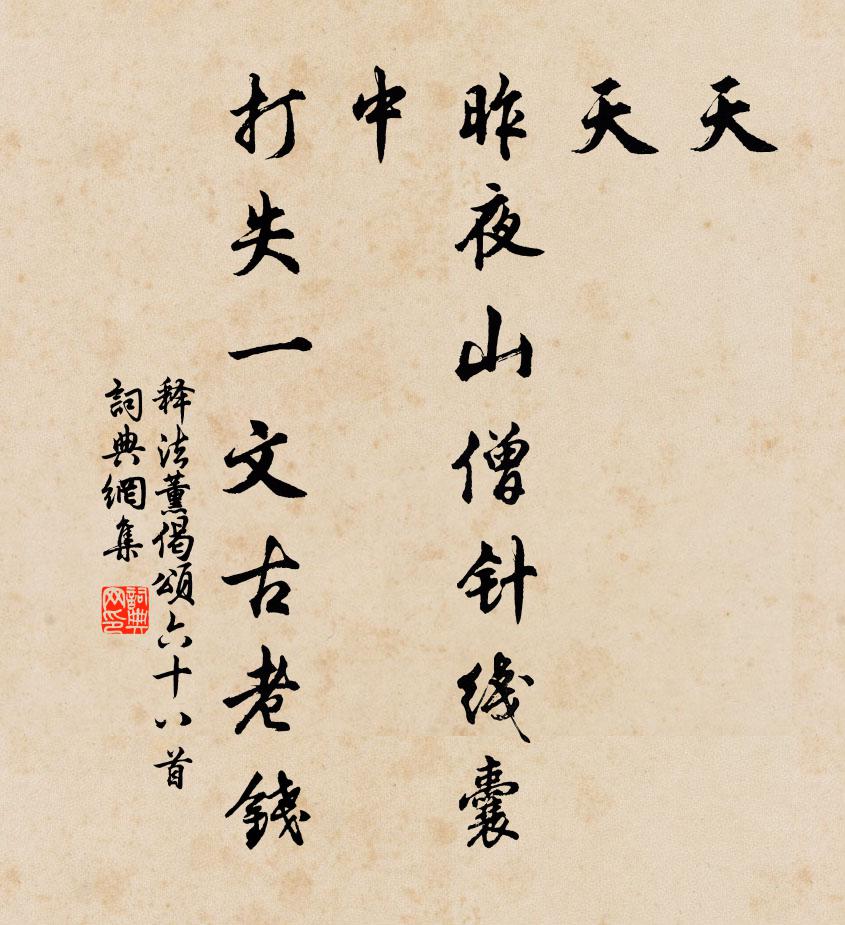 天
天
昨夜山僧针线囊
中
打失一文古老錢
释法薰偈頌六十八首
詞典網集
詞典网印